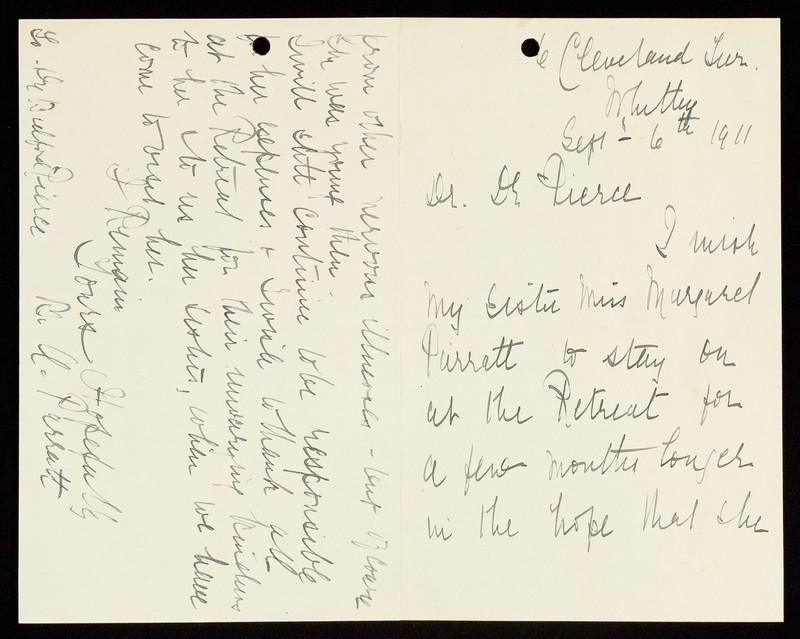 6 Cleveland Terr.
Whitby
Sept - 6th 1911
Dr. Dr Pierce
I wish
My sister Miss Margaret
Parratt to stay on
at the Retreat for
a few months longer
in the hope that she
from other nervous illnesses - but of course
she was young then
I will still continue to be responsible
for her expenses & I wish to thank all
at the Retreat for their unvarying kindness
to her & to us her sisters, when we have
come to visit her.
I Remain
Yours Hopefully
R. A. Parratt
To Dr Bedford Pierce